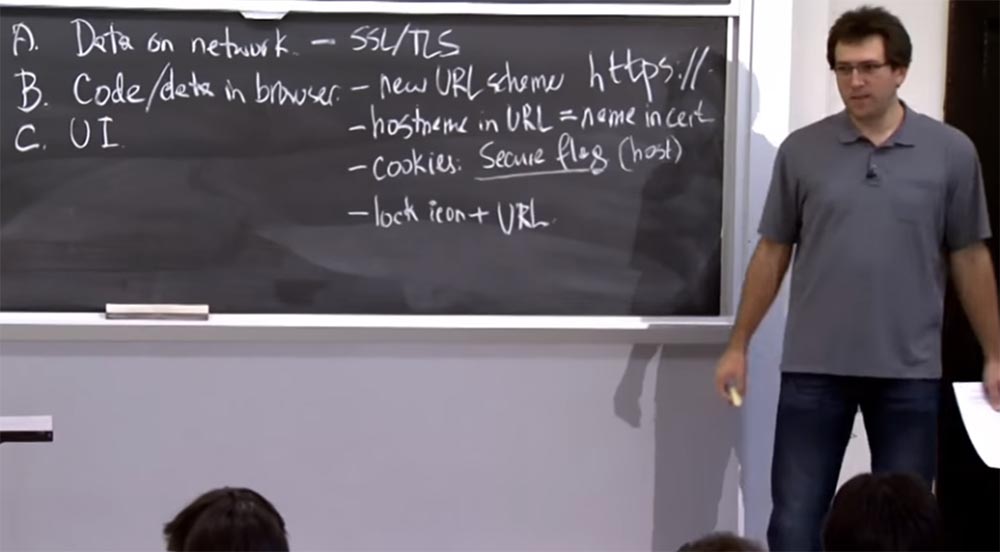 A. Data on network. - SSL/TLS
B. Code/data in browser. - new URL scheme https://
- hostname in URL = name in cert
C. UI.
- cookies: Secure flag (host)
- lock icon + URL.